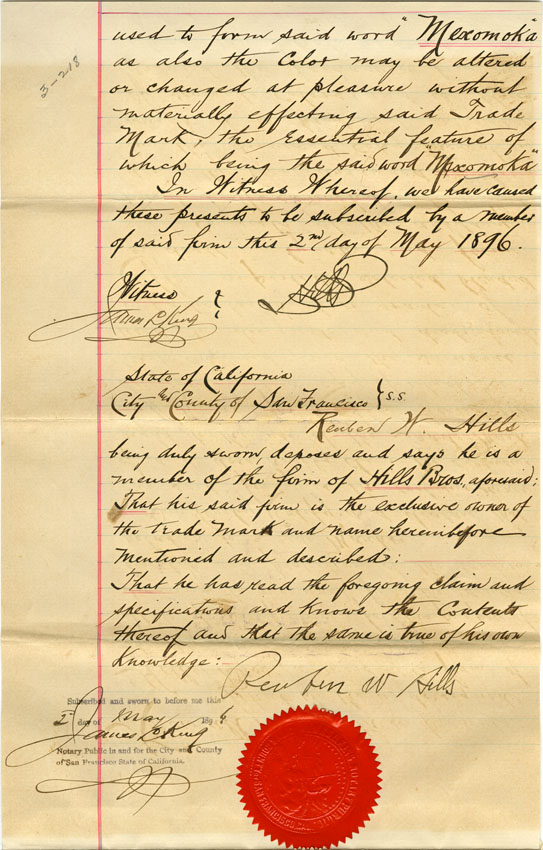 3-218
used to form said word "Mexomoka"
as also the Color may be altered
or changed at pleasure without
materially effecting said Trade
Mark, the Essential feature of
which being the said word "Mexomoka"
In Witness Whereof, we have caused
these presents to be subscribed by a member
of said firm this 2nd day of May 1896.
Witness
James L. King
State of California
City and County of San Francisco } S.S.
Reuben W. Hills
being duly sworn, deposes and says he is a
member of the firm of Hills Bros, aforesaid;
That his said firm is the exclusive owner of
the trade mark and name hereinbefore
mentioned and described:
That he has read the foregoing claim and
specifications and knows the Contents
thereof and that the same is true of his own
Knowledge:-
Reuben W Hills
Subscribed and sworn to before me this
2nd day of May 1896
James L. King
Notary Public in and for the City and County
of San Francisco State of California.